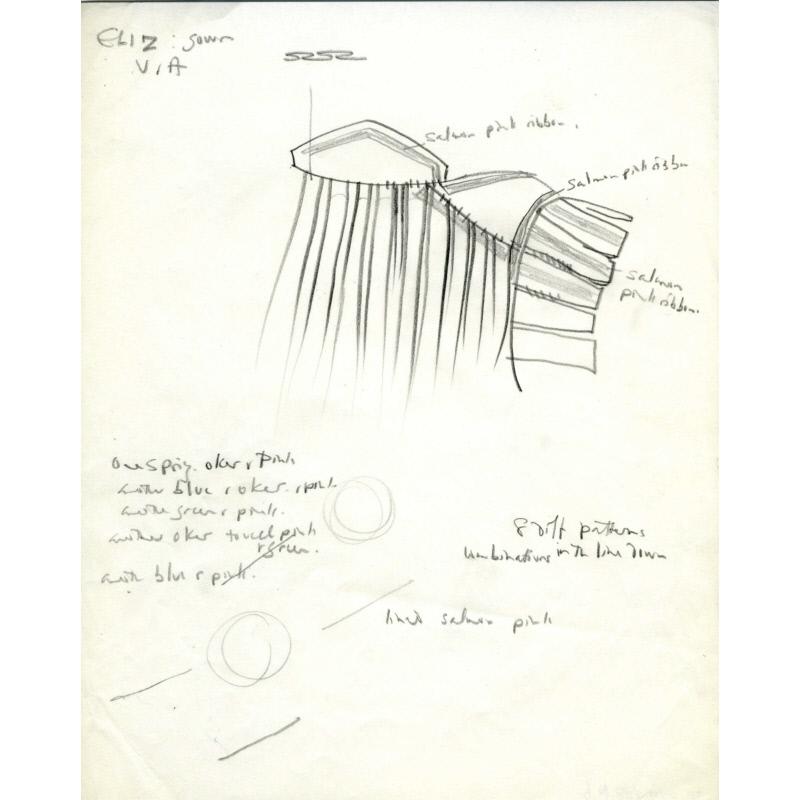 ELIZ : gown
V/A
salmon pink ribbon.
salmon pink ribbon
salmon
pink ribbon.
One sprig. oker & Pink
another blue & oker. & pink.
another green & pink.
another oker touch pink
& green.
another blue & pink.
8 Diff patterns
combinations with line down
lined salmon pink